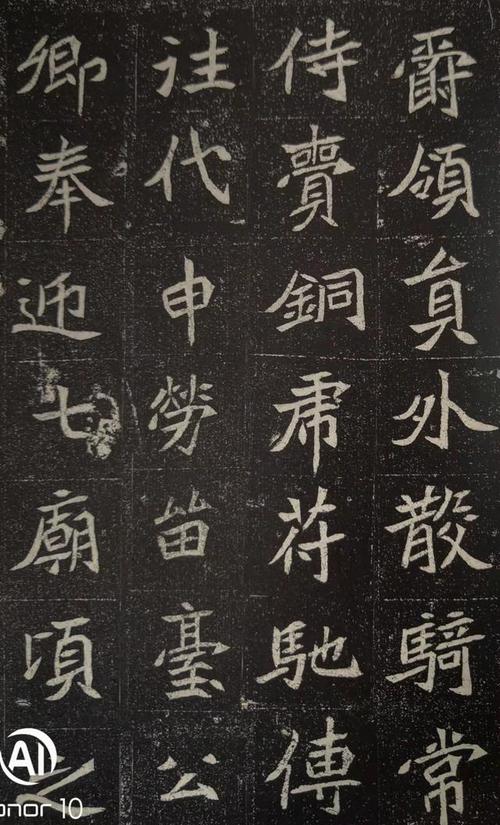 爵領員外散騎常
侍賫銅虎苻馳傳
往代申勞留臺公
卿奉迎七廟頃之
AI
onor 10